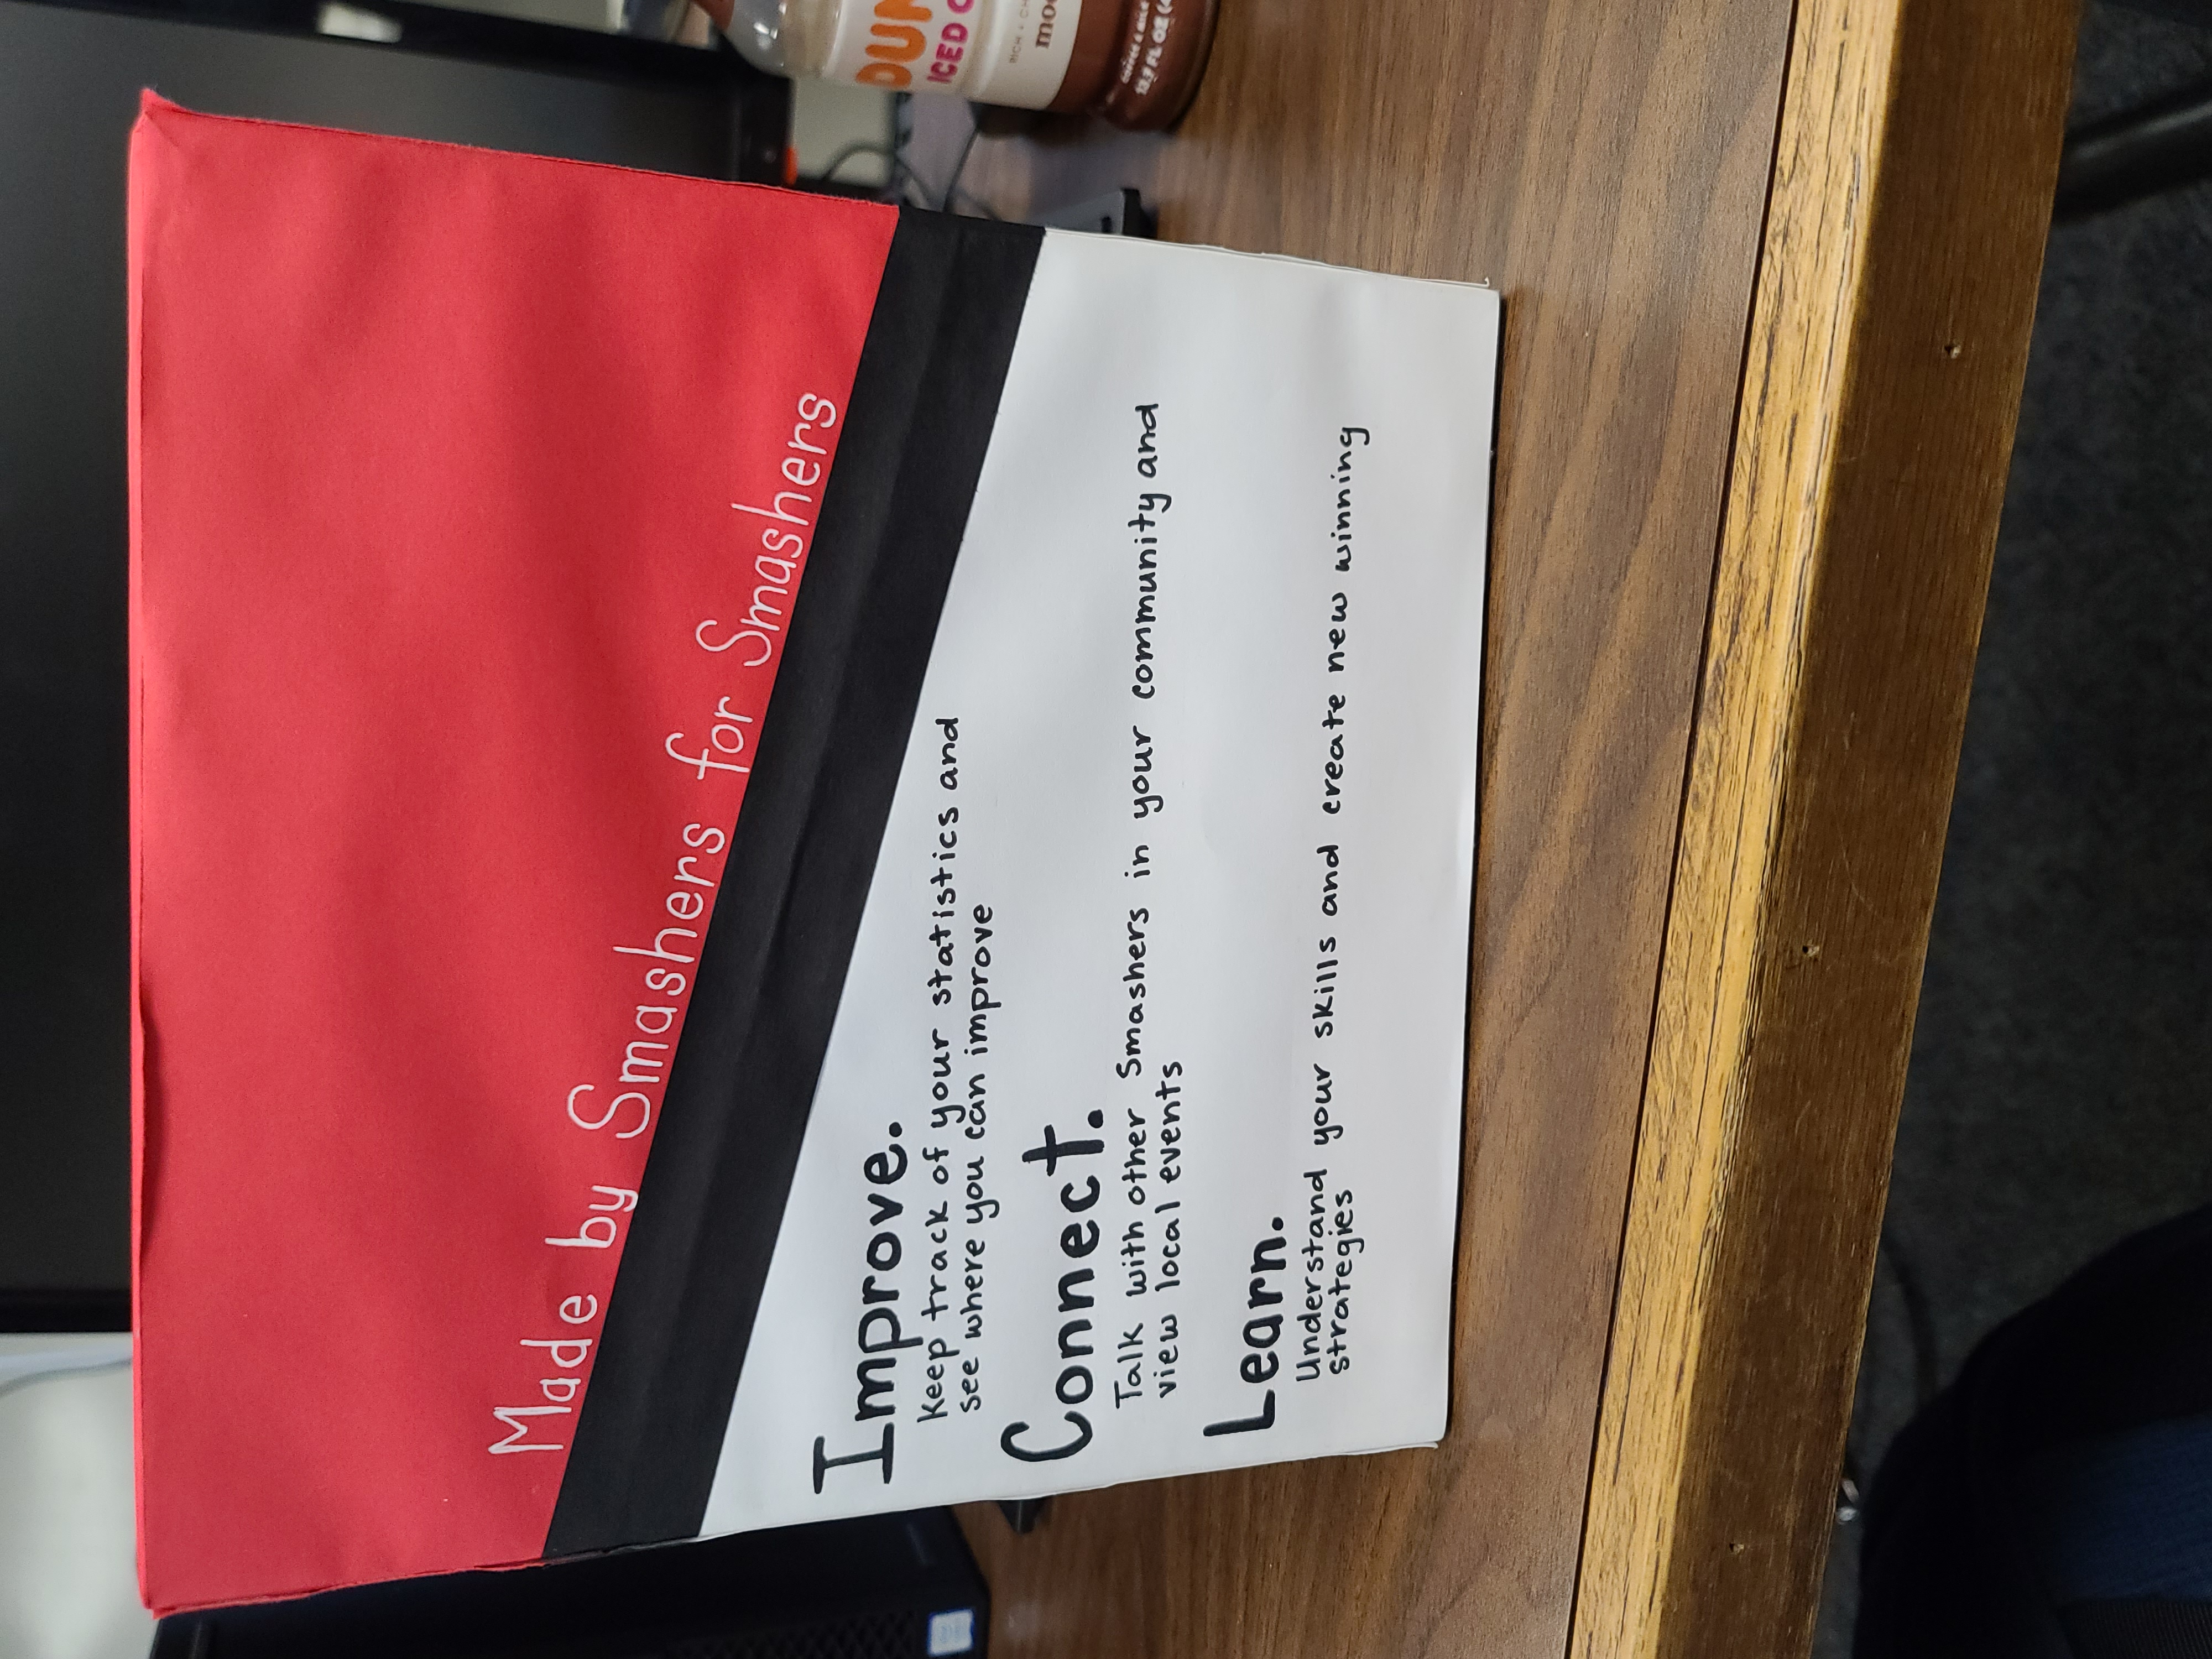 Made by Smashers for Smashers
Improve.
Keep track of your statistics and
see where you can improve
Connect.
Talk with other Smashers in your community and
view local events
Learn.
Understand your skills and create new winning
strategies
ICED